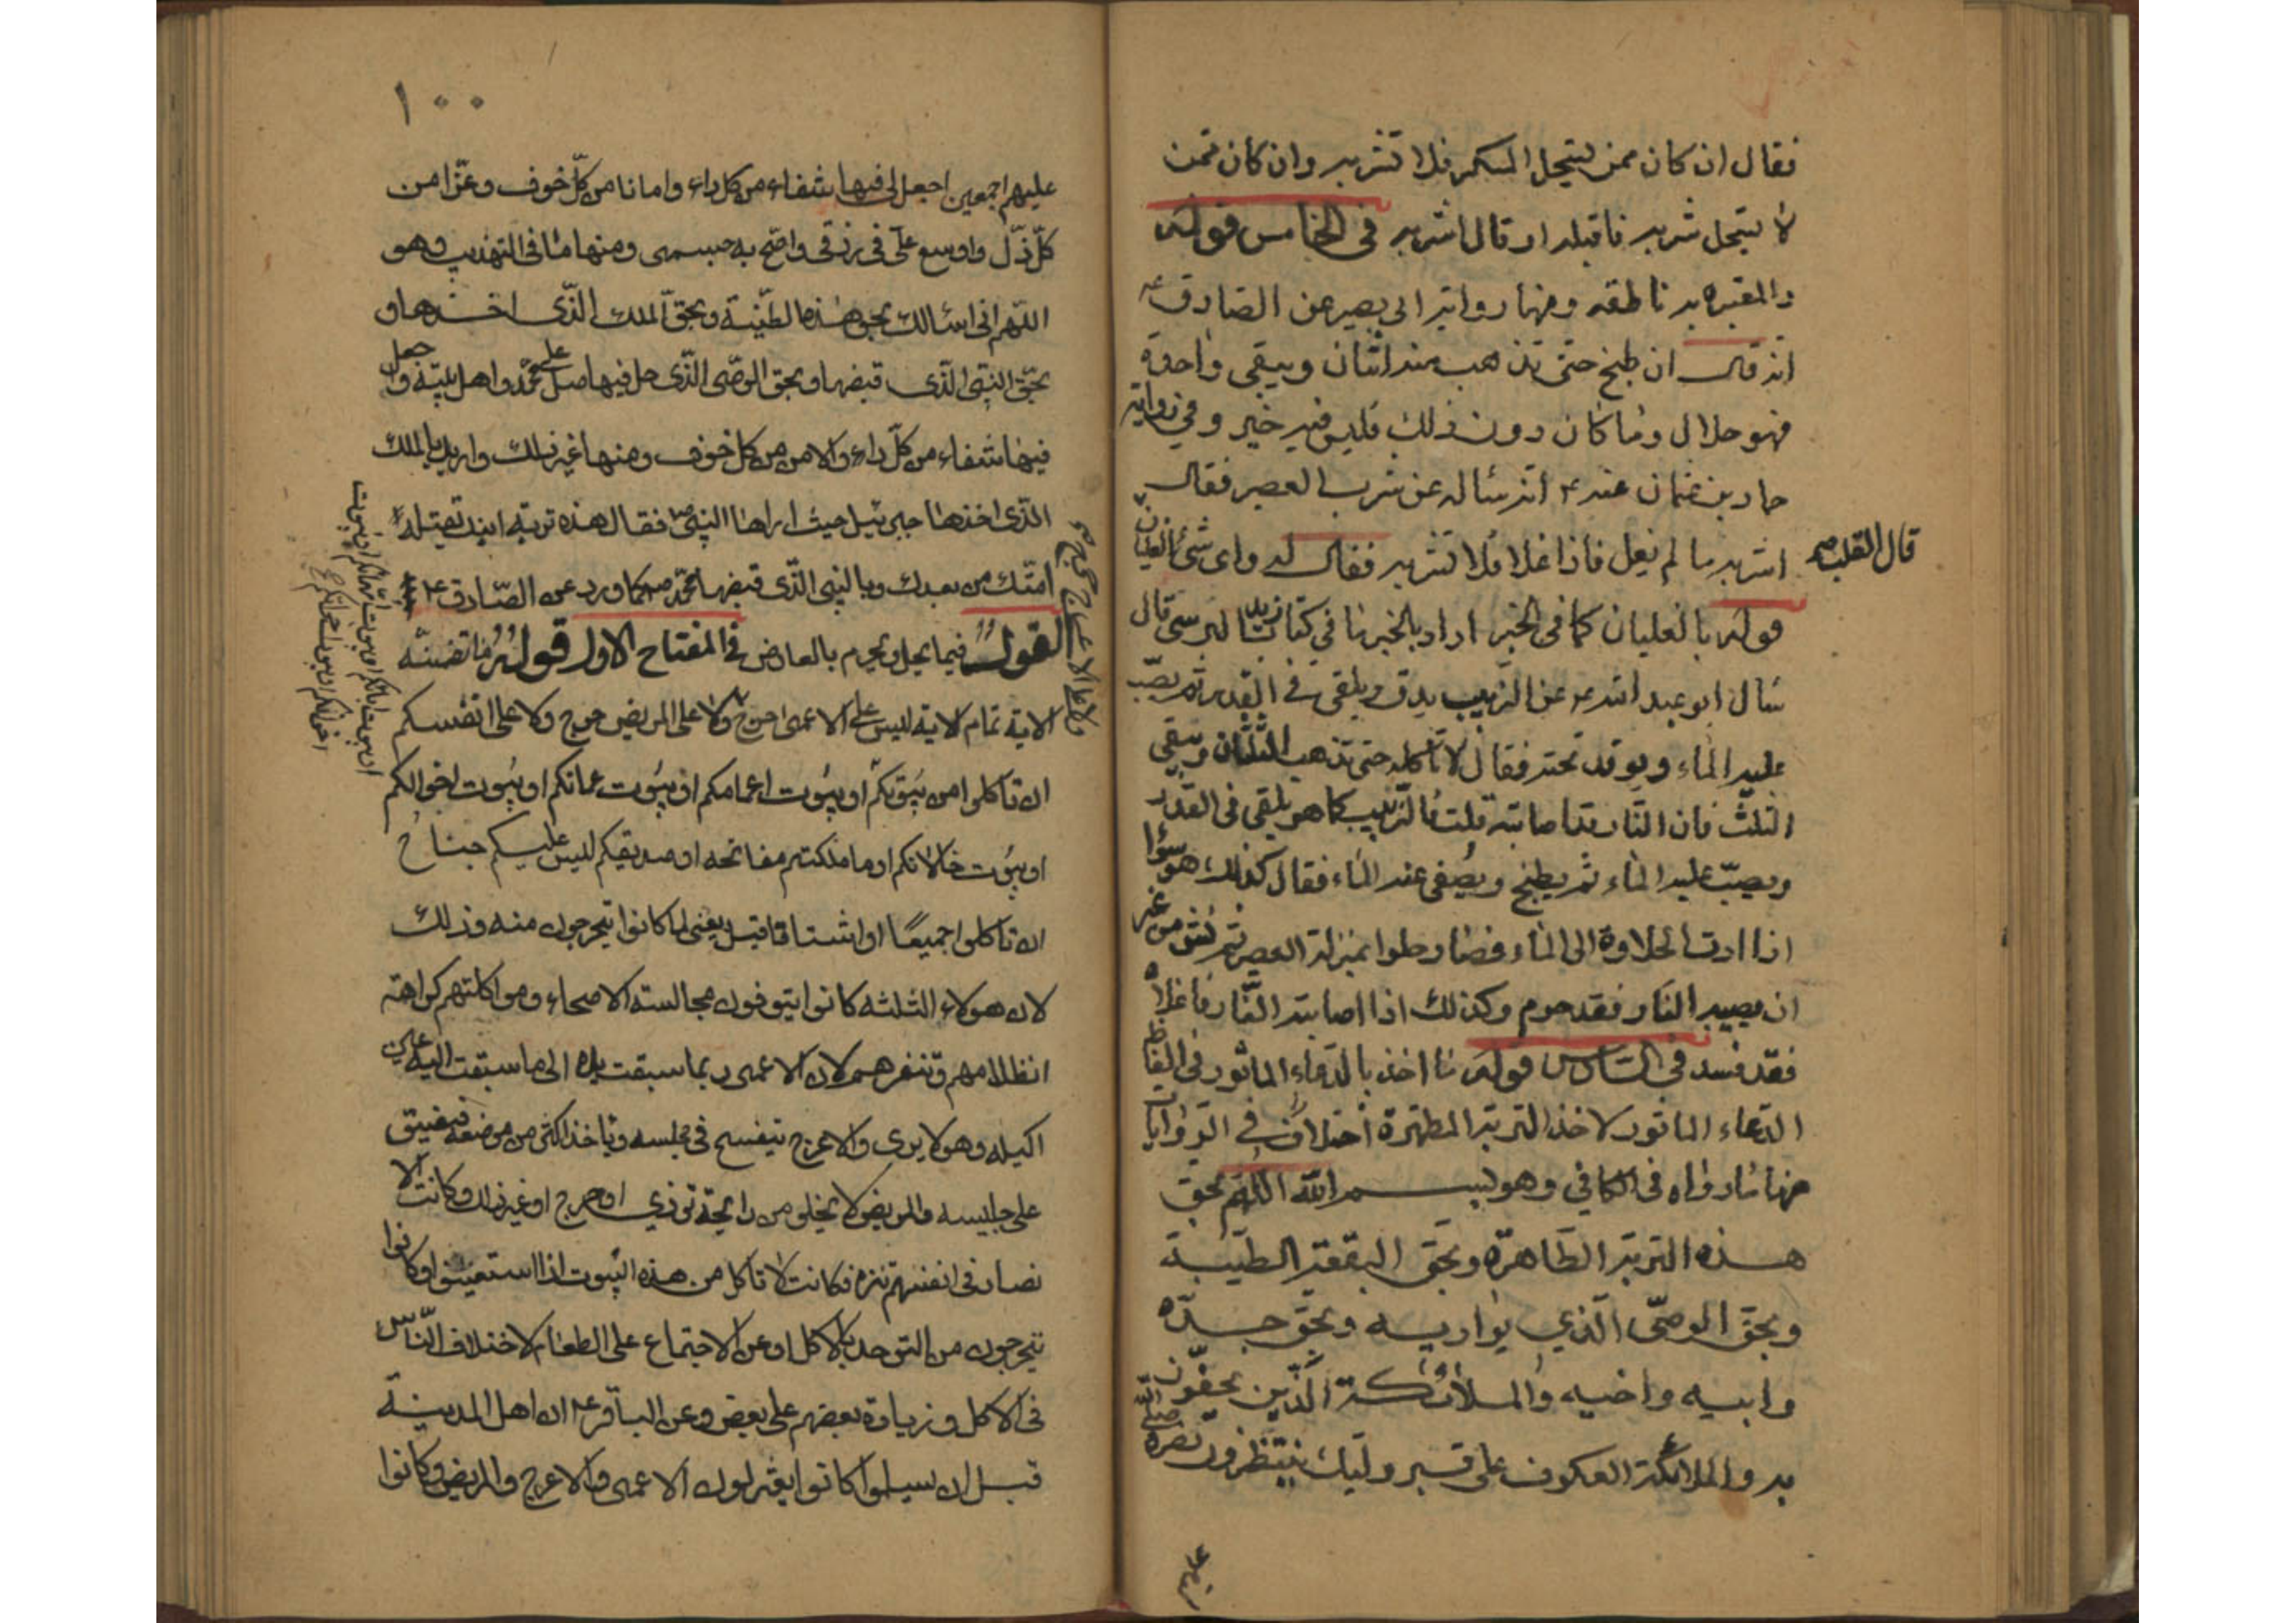 فقال ان كان ممن يستحل المسكر فلا تشربه وان كان ممن
لا يستحل شربه فاقبله او قال اشربه في الخامس قوله
والمعتبره به ناطقه ومنها رواية ابى بصير عن الصادق ع
انه قال ان طبخ حتى تذهب منه اثنان ويبقى واحدة
فهو حلال وما كان دون ذلك فليس فيه خير وفي رواية
حماد بن عثمان عنه ع انه سئاله عن شرب العصير فقال
اشربه ما لم يغل فاذا غلا فلا تشربه فقال له واى شئ الغليان
قال القلب
قوله بالغليان كما في الخبر اراد بالخبر ما في كتاب زيد النرسى قال
سئال ابو عبد الله ع عن الزبيب يدق ويلقى في القدر ثم يصب
عليه الماء ويوقد تحته فقال لا تاكله حتى تذهب الثلثان ويبقى
الثلث فان النار قد اصابته قلت فالزبيب كما هو يلقى في القدر
ويصب عليه الماء ثم يطبخ ويصفى عنه الماء فقال كذلك هو سوا
اذا ادت الحلاوة الى الماء فصار حلوا بمنزلة العصير ثم نش من غير
ان يصيبه النار فقد حرم وكذلك اذا اصابته النار فاغلاه
فقد فسد في السادس قوله نا اخذ بالدعاء الماثور في الفاظ
الدعاء الماثور لاخذ التربة المطهرة اختلاف في الروايات
منها ما رواه في الكافي وهو بسم الله اللهم بحق
هذه التربة الطاهرة وبحق البقعة الطيبة
وبحق الوصى الذي يواريه وبحق جده
وابيه واخيه والملائكة الذين يحفون
به والملائكة العكوف على قبر وليك ينتظرون نصره صلى الله
١٠٠
عليهم اجمعين اجعل لي فيها شفاء من كل داء وامانا من كل خوف وعزا من
كل ذل واوسع علي في رزقى واصح به جسمى ومنها ما في التهذيب وهو
اللهم انى اسئالك بحق هذه الطينة وبحق الملك الذى اخذها و
بحق النبي الذى قبضها وبحق الوصى الذى حل فيها صل على محمد واهل بيته واجعل
فيها شفاء من كل داء والامن من كل خوف ومنها غير ذلك واريد بالملك
الذى اخذها جبرئيل حيث اراها النبي ص فقال هذه تربة ابنك تقتله
امتك من بعدك وبالنبي الذى قبضها محمد ص كما ورد عن الصادق ع
القول فيما يحل ويحرم بالعارض في المفتاح الاول قوله ما تضمنته
الاية تمام الاية ليس على الاعمى حرج ولا على المريض حرج ولا على انفسكم
ان تاكلوا من بيوتكم او بيوت اعمامكم او بيوت عماتكم او بيوت اخوالكم
او بيوت خالاتكم او ما ملكتم مفاتحه او صديقكم ليس عليكم جناح
ان تاكلوا جميعا او اشتاتا قيل يعنى لما كانوا يتحرجون منه وذلك
لان هولاء الثلثه كانوا يتوقون مجالسة الاصحاء ومواكلتهم كراهة
لان الاعمى ربما سبقت يده الى ما سبقت اليه عين
اكيله وهو لا يرى والاعرج يتفسح في مجلسه وياخذ اكثر من موضعه فيضيق
على جليسه والمريض لا يخلو من رائحة توذي او جرح او غير ذلك وكانت الا
نصار في انفسهم تنزه فكانت لا تاكل من هذه البيوت اذا استغنوا وكانوا
يتحرجون من التوحد بالاكل او عن الاجتماع على الطعام لاختلاف الناس
في الاكل وزيادة بعضهم على بعض وعن الباقر ع ان اهل المدينة
قبل ان يسلموا كانوا يعتزلون الاعمى والاعرج والمريض وكانوا
ولا على الاعرج حرج
او بيوت ابائكم او بيوت امهاتكم او بيوت
اخوانكم او بيوت اخواتكم